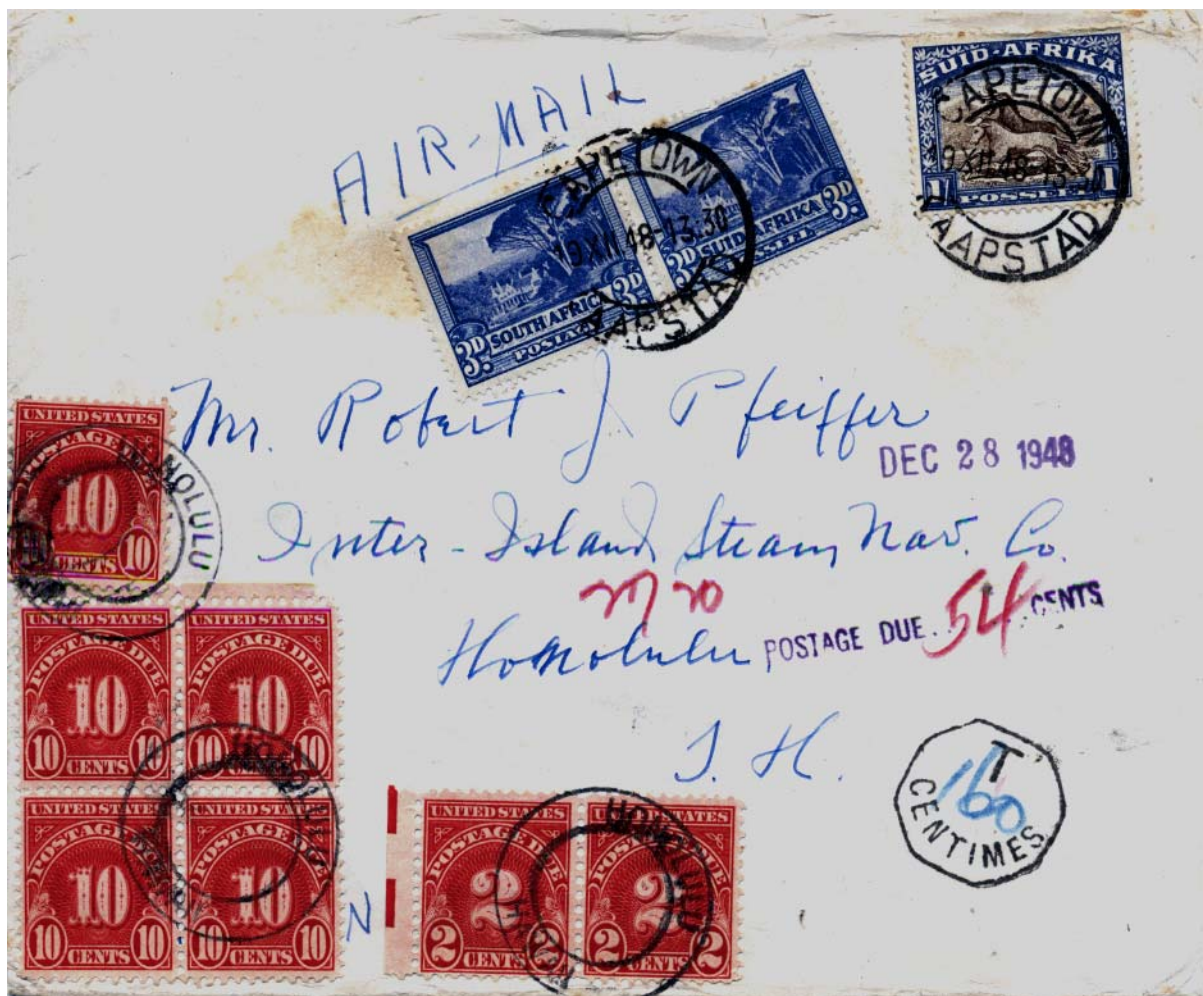 SUID-AFRIKA
CAPETOWN
19 XII 48-13
1/ POSSEËL 1/
KAAPSTAD
AIR-MAIL
CAPETOWN
19 XII 48-13.30
3D SOUTH AFRICA 3D
POSTAGE
3D SUID-AFRIKA 3D
POSSEËL
KAAPSTAD
Mr. Robert J. Pfeiffer
DEC 28 1948
Inter-Island Steam Nav. Co.
Honolulu
POSTAGE DUE 54 CENTS
T. H.
T
160
CENTIMES
UNITED STATES
POSTAGE DUE
10
10 CENTS 10
HONOLULU
UNITED STATES
POSTAGE DUE
10
10 CENTS 10
UNITED STATES
POSTAGE DUE
10
10 CENTS 10
UNITED STATES
POSTAGE DUE
10
10 CENTS 10
UNITED STATES
POSTAGE DUE
10
10 CENTS 10
HONOLULU
UNITED STATES
POSTAGE DUE
2
2 CENTS 2
UNITED STATES
POSTAGE DUE
2
2 CENTS 2
HONOLULU
N